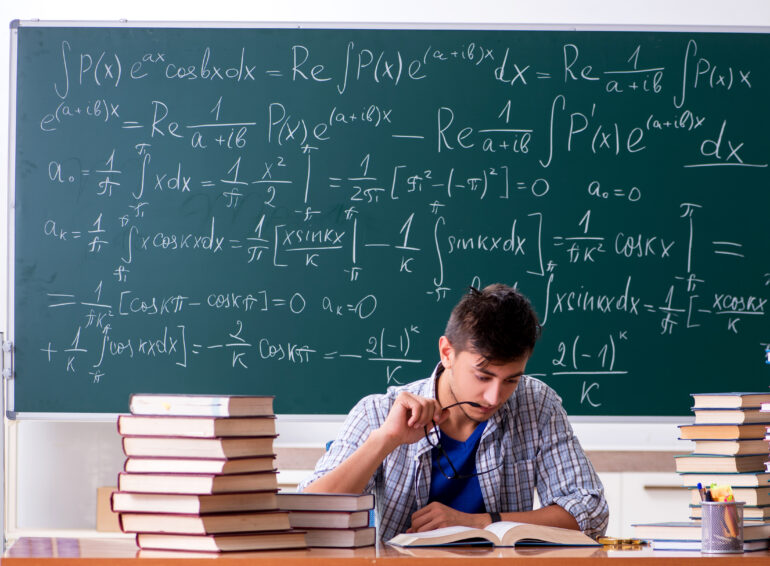 ∫P(x) e^{ax} cosbxdx = Re ∫P(x) e^{(a+ib)x} dx = Re 1/(a+ib) ∫P(x) x
e^{(a+ib)x} = Re 1/(a+ib) P(x) e^{(a+ib)x} — Re 1/(a+ib) ∫P'(x) e^{(a+ib)x} dx
a₀ = 1/π ∫_{-π}^{π} xdx = 1/π x²/2 |_{-π}^{π} = 1/2π [π² - (-π)²] = 0 a₀ = 0
aₖ = 1/π ∫_{-π}^{π} x cosкxdx = 1/π [xsinкx/к |_{-π}^{π} — 1/к ∫_{-π}^{π} sinкxdx] = 1/πк² cosкx |_{-π}^{π} =
= 1/πк² [cosкπ - cosкπ] = 0 aₖ = 0 ∫ xsinкxdx = 1/π [- xcosкx/к
+ 1/к ∫_{-π}^{π} cosкxdx] = - 2/к cosкπ = - 2(-1)^к/к - 2(-1)^к/к